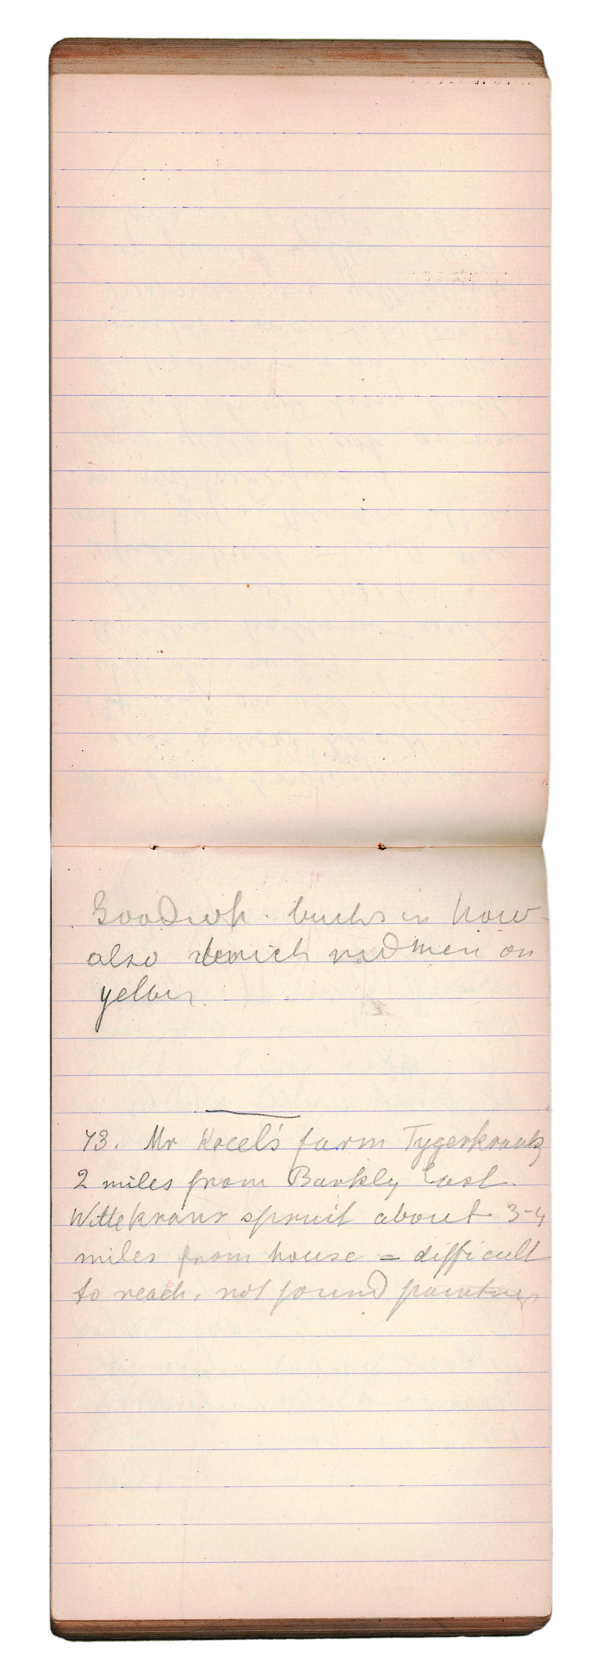 Good wh. bucks in
also red men on
yellow.
73. Mr Kocel's farm Tygerkrantz
2 miles from Barkly East.
Wittekranz spruit about 3-4
miles from house = difficult
to reach, not found paintings